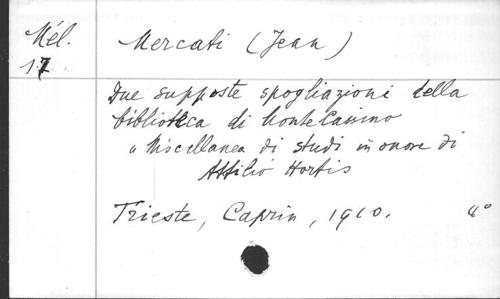 Mél.
17
Mercati (Jean)
Due supposte spogliazioni della
biblioteca di Montecassino
" Miscellanea di studi in onore di
Attilio Hortis
Trieste, Caprin, 1910. 4°